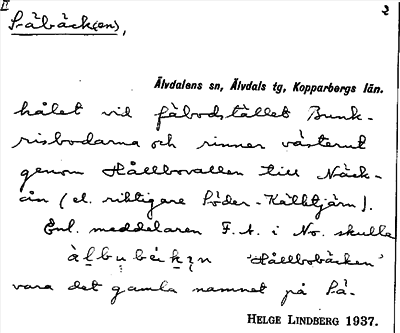 II 2
Såbäck(en),
Älvdalens sn, Älvdals tg, Kopparbergs län.
hålet vid fäbodstället Bunk-
risbodarna och rinner västerut
genom Hållbovallen till Näck-
ån (el. riktigare Söder-Kälktjärn).
Enl. meddelaren F. A. i No. skulla
'Hållbobäcken'
vara det gamla namnet på Så-
HELGE LINDBERG 1937.